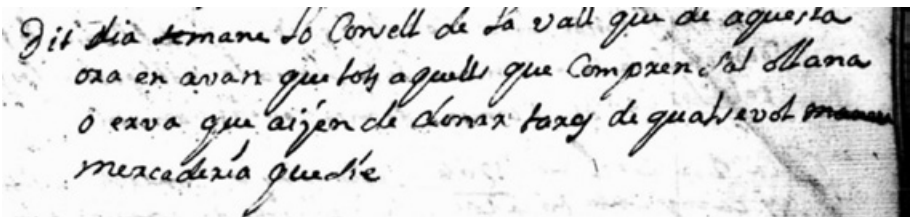 Dit dia semane lo Consell de la vall que de aquesta
ora en avan que tots aquells que Compren sal ollana
o erva que aijen de donar foxes de qualsevol manera
mercaderia que sie